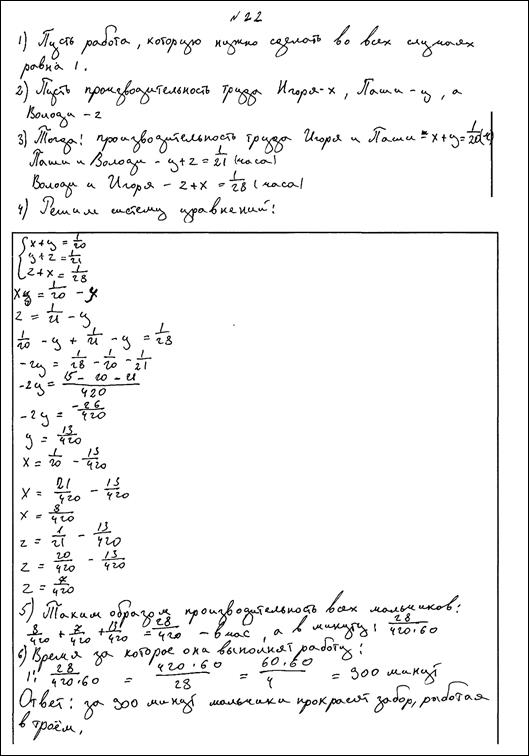 № 22
1) Пусть работа, которую нужно сделать во всех случаях
равна 1.
2) Пусть производительность труда Игоря - x, Паши - y, а
Володи - z
3) Тогда: производительность труда Игоря и Паши - x+y = 1/20 (ч)
Паши и Володи - y+z = 1/21 (часа)
Володи и Игоря - z+x = 1/28 (часа)
4) Решим систему уравнений:
{ x+y = 1/20
y+z = 1/21
z+x = 1/28
x = 1/20 - y
z = 1/21 - y
1/20 - y + 1/21 - y = 1/28
-2y = 1/28 - 1/20 - 1/21
-2y = (15 - 20 - 21)/420
-2y = -26/420
y = 13/420
x = 1/20 - 13/420
x = 21/420 - 13/420
x = 8/420
z = 1/21 - 13/420
z = 20/420 - 13/420
z = 7/420
5) Таким образом производительность всех мальчиков:
8/420 + 7/420 + 13/420 = 28/420 - в час, а в минуту: 28/420·60
6) Время за которое она выполнят работу:
1: 28/420·60 = 420·60/28 = 60·60/4 = 900 минут
Ответ: за 900 минут мальчики прокрасят забор, работая
в троём.